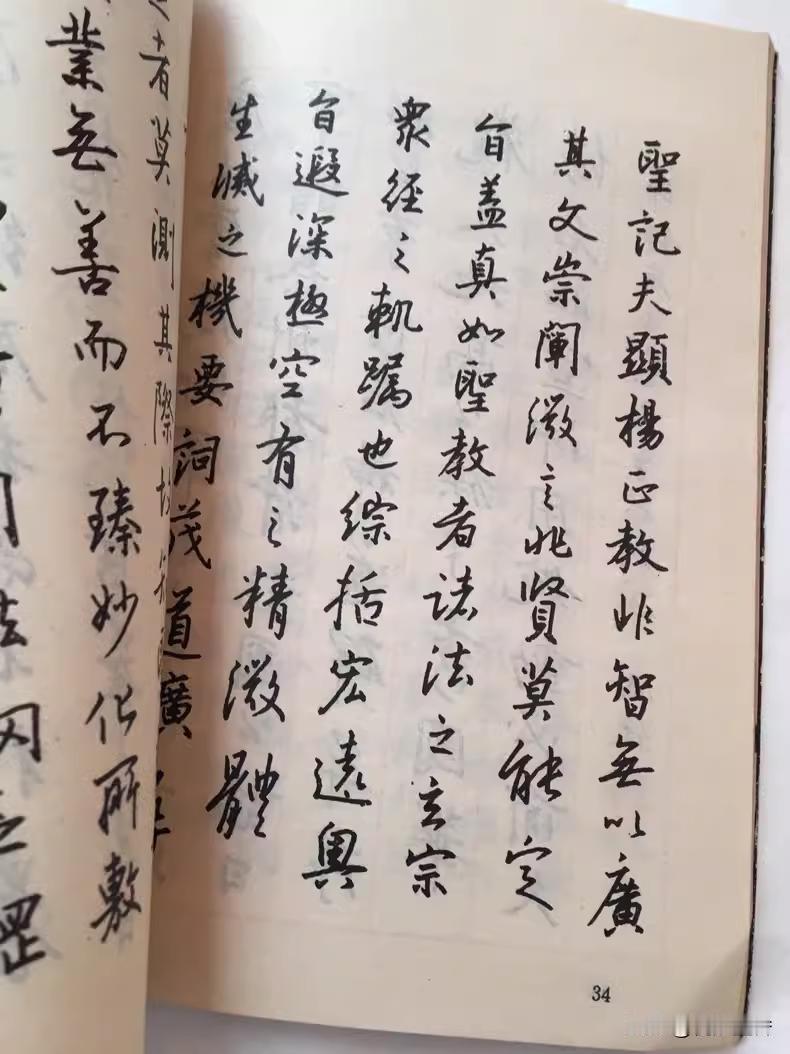 聖記夫顯楊正教非智無以廣
其文崇闡微言非賢莫能定
旨蓋真如聖教者諸法之玄宗
衆經之軌躅也綜括宏遠奧
旨遐深極空有之精微體
生滅之機要詞茂道廣
者莫測其際
業無善而不臻妙化所敷
34